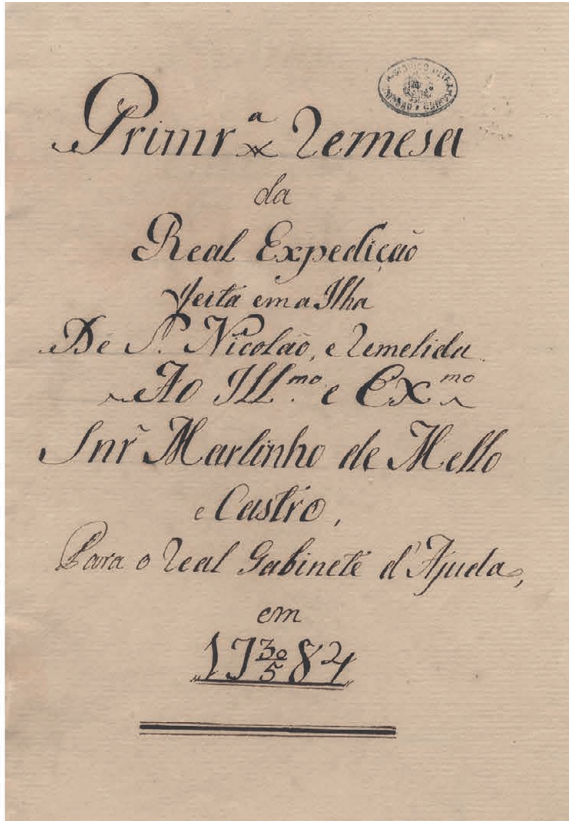 Primr.ª Remesa
da
Real Expedição
feita em a Ilha
De S. Nicolaõ, e Remetida
Ao Ill.mo e Ex.mo
Snr̃ Martinho de Mello
e Castro,
Para o Real Gabinete d'Ajuda,
em
17 30/5 84